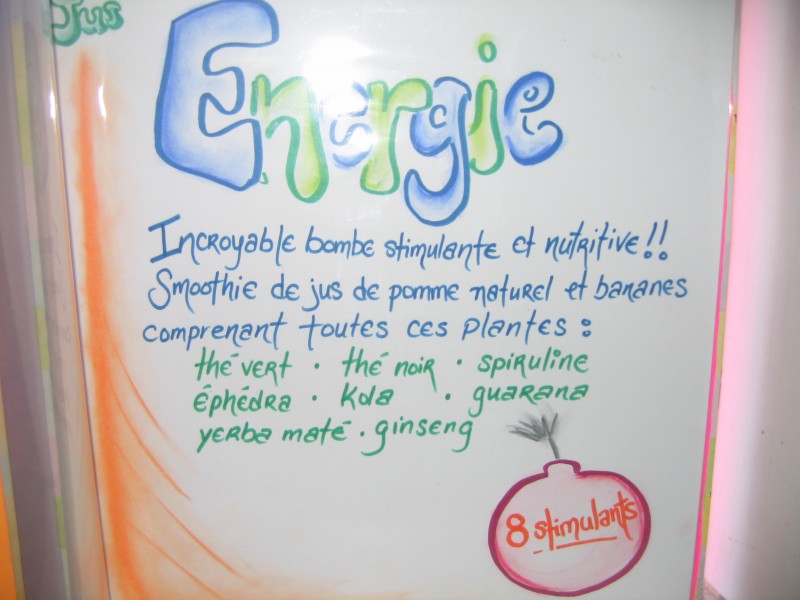 Jus
Energie
Incroyable bombe stimulante et nutritive!!
Smoothie de jus de pomme naturel et bananes
comprenant toutes ces plantes :
thé vert · thé noir · spiruline
éphédra · kola · guarana
yerba maté · ginseng
8 stimulants